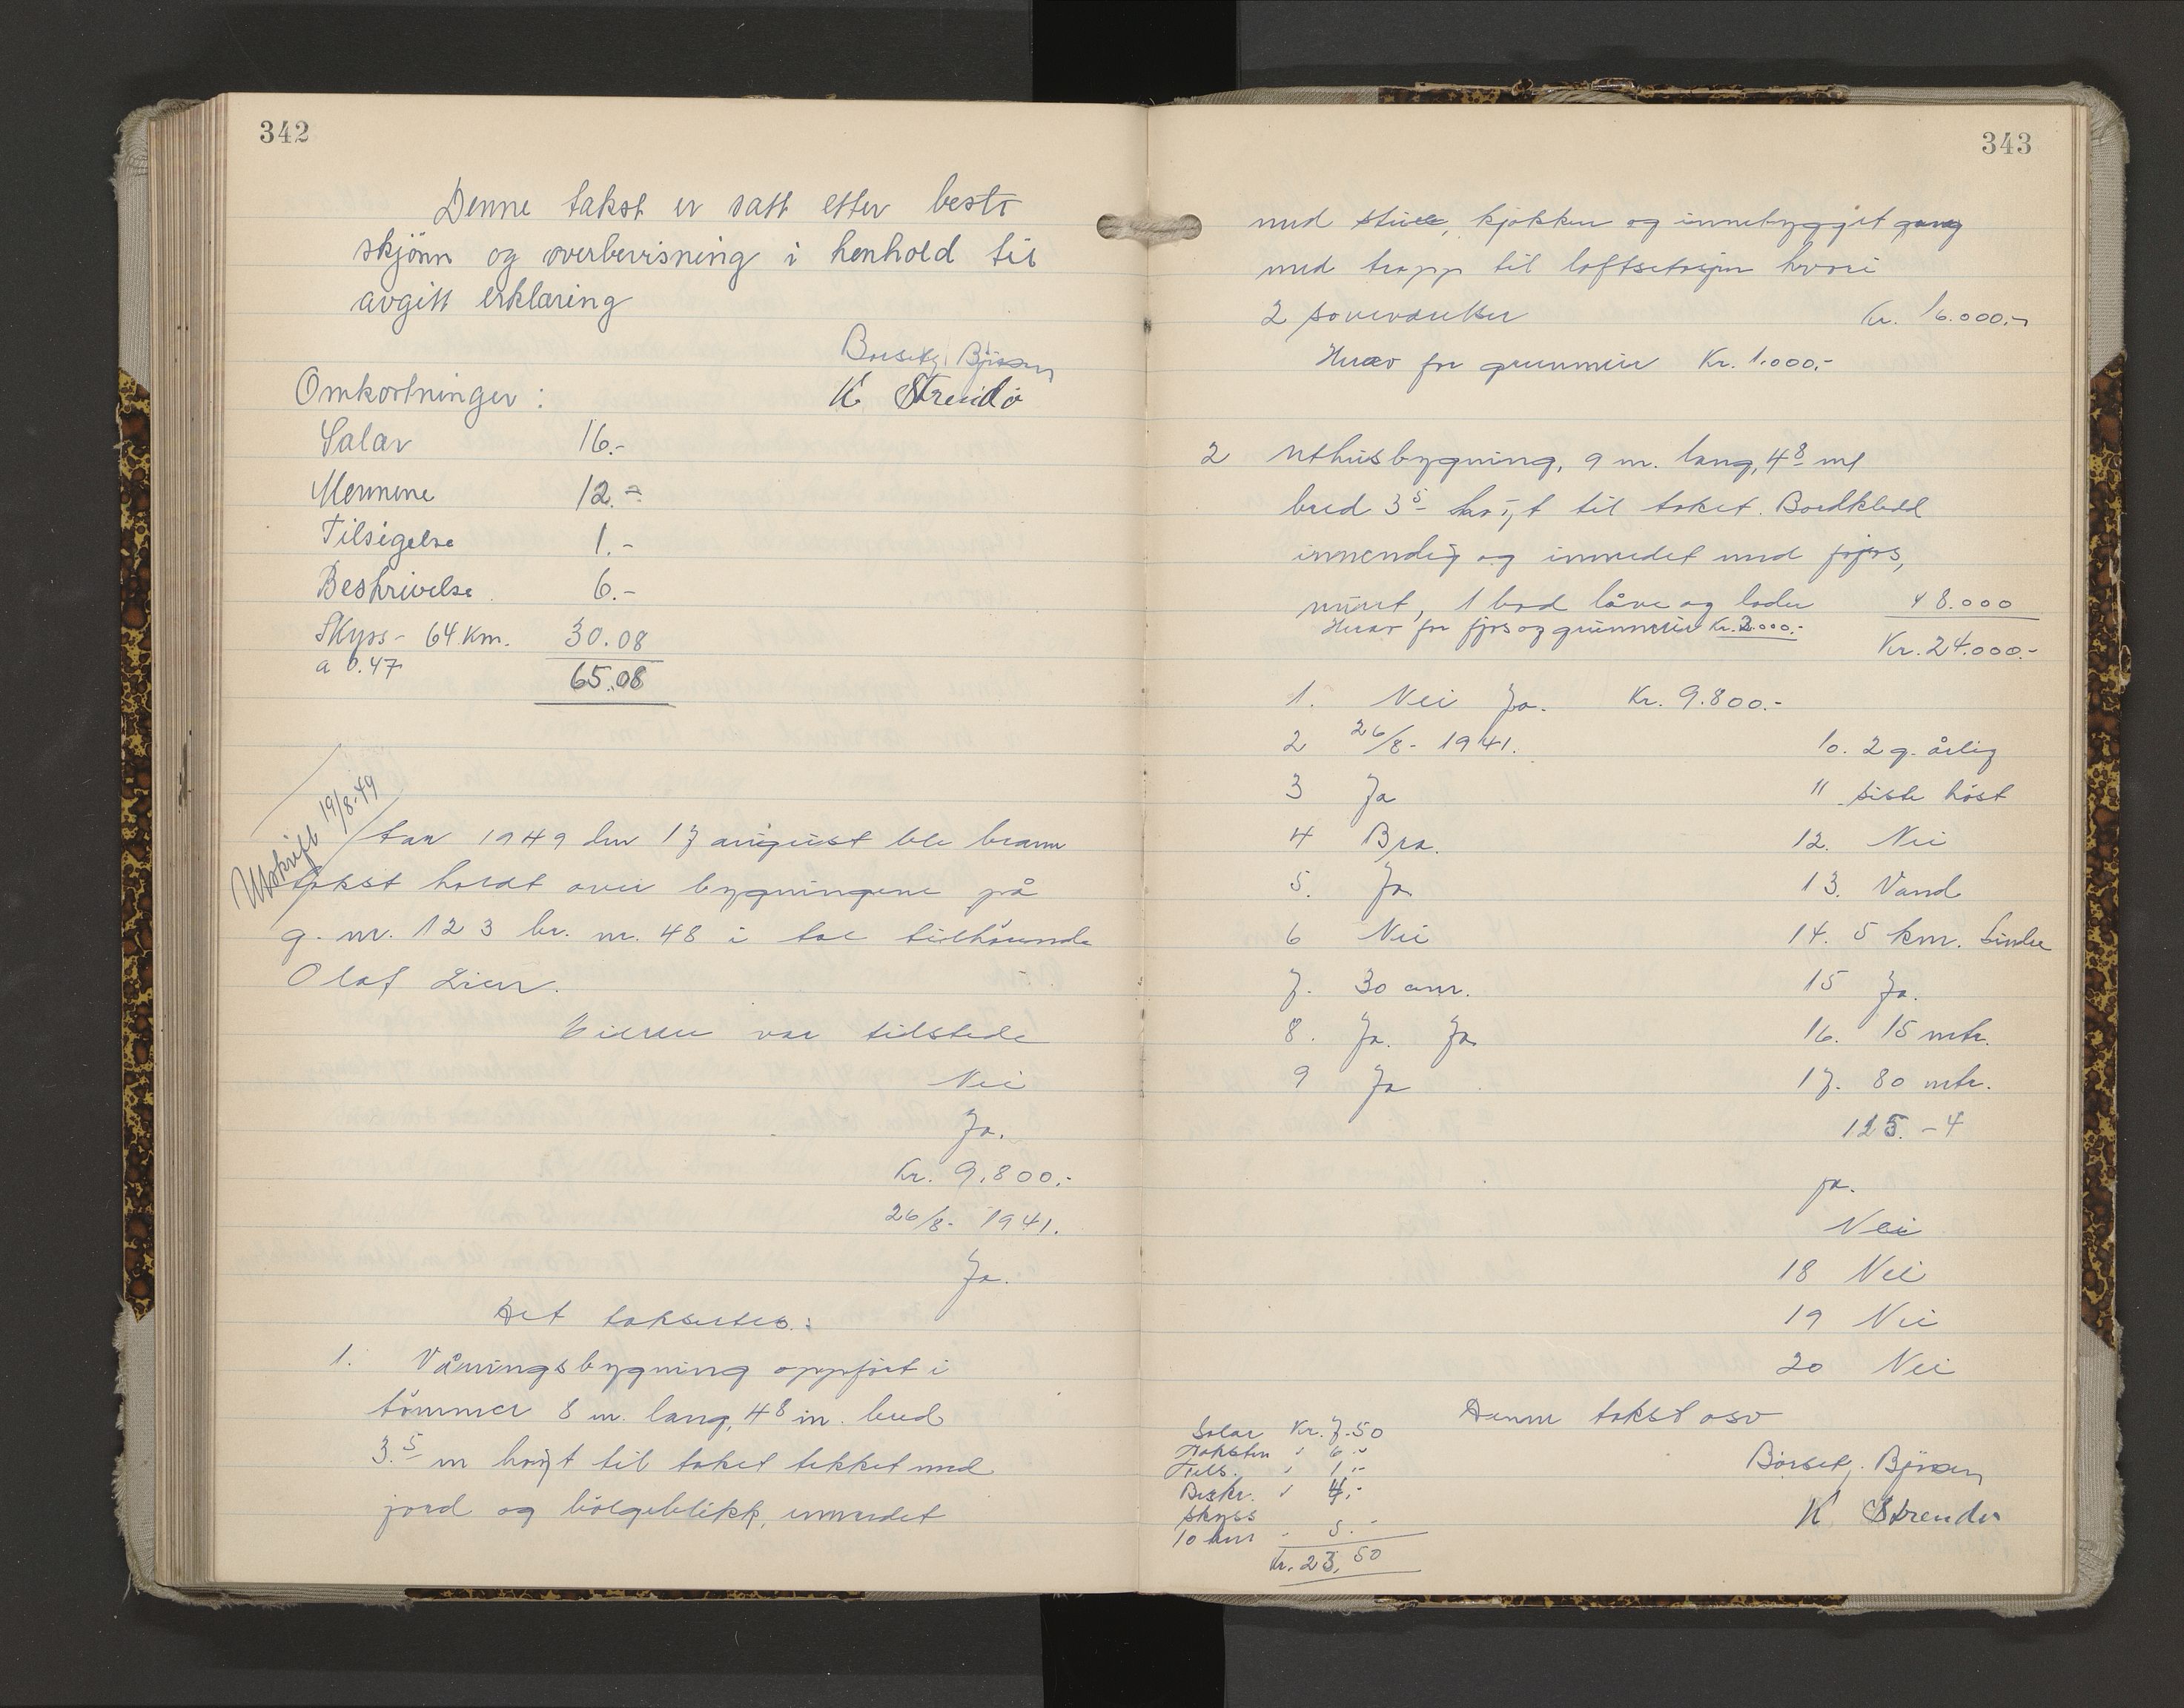 342
Denne takst er satt etter beste
skjönn og overbevisning i henhold til
avgitt erklæring
Börseth Björsen
K Strendo
Omkostninger:
Salær 16.-
Mennene 12.-
Tilsigelse 1.-
Beskrivelse 6.-
Skyss - 64 km. 30.08
a 0.47
65.08
Utskrift 19/8-49
Aar 1949 den 17 august ble brann
takst holdt over bygningene på
g. nr. 123 br. nr. 48 i tilhörende
Olaf Lien.
Eieren var tilstede
Nei
Ja.
Kr. 9.800.-
26/8- 1941.
Ja.
Det takseres:
1. Våningsbygning oppfört i
tömmer 8 m. lang, 4 8 m. bred
3. 5 m höyt til taket tekket med
jord og bölgeblikk, innredet
343
med stue, kjökken og innebygget gang
med trapp til loftsetasjen hvori
2 soverværelser Kr. 16.000.-
Herav for grunnmur Kr. 1.000.-
2 Uthusbygning, 9 m. lang, 4 8 mt
bred 3 5 höyt til taket. Bordkledd
innvendig og innredet med fjös,
1 bod låve og lader " 8.000
Herav for fjös og grunnmur Kr. 2.000.-
Kr. 24.000.-
1. Nei Ja. Kr. 9.800.-
2 26/8- 1941.
10. 2 g. årlig
3 Ja
11 siste höst
4 Bra.
12. Nei
5. Ja
13. Vand
6 Nei
14. 5 km. lensm
7. 30 cm.
15 Ja.
8. Ja. Ja
16. 15 mtr.
9 Ja
17. 80 mtr.
125. - 4
ja.
Nei
18 Nei
19 Nei
20 Nei
Denne takst osv
Salær Kr. 7.50
Taksten " 6.-
Tils. " 1.-
Beskr. " 4.-
Skyss
10 km - 5.-
Kr. 23.50
Börseth Björsen
K Strendo